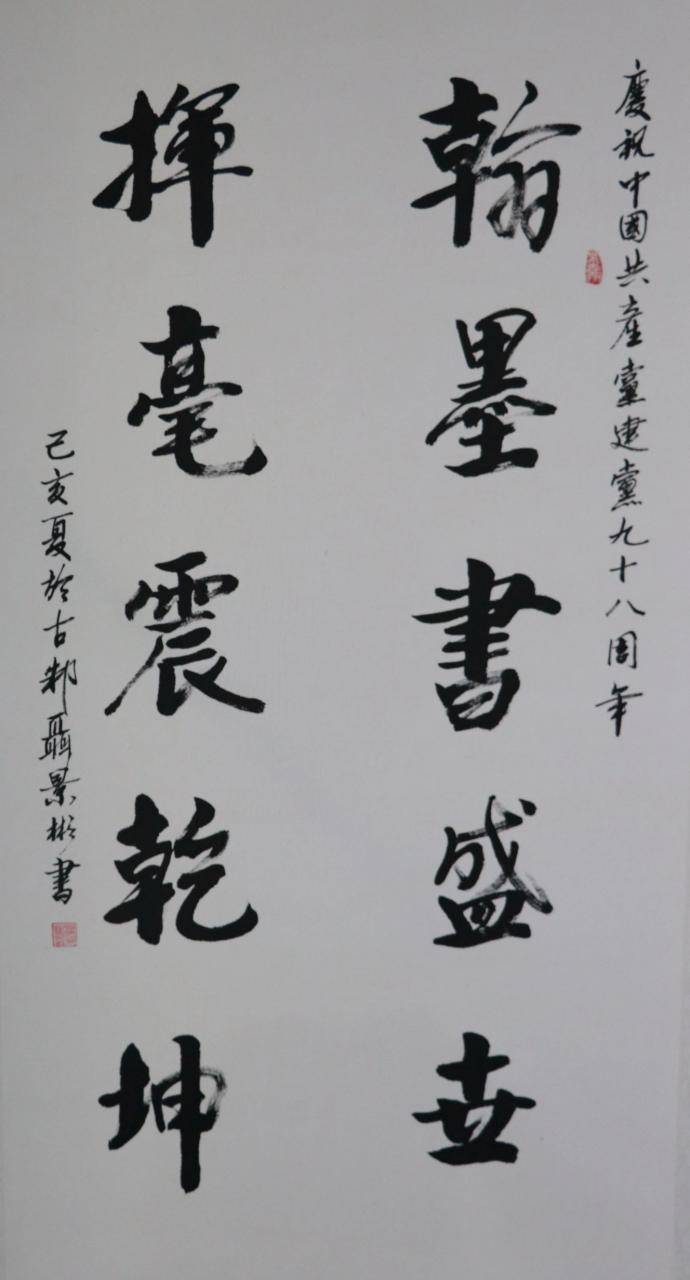 慶祝中國共產黨建黨九十八周年
翰墨書盛世
揮毫震乾坤
己亥夏於古邾聶景彬書